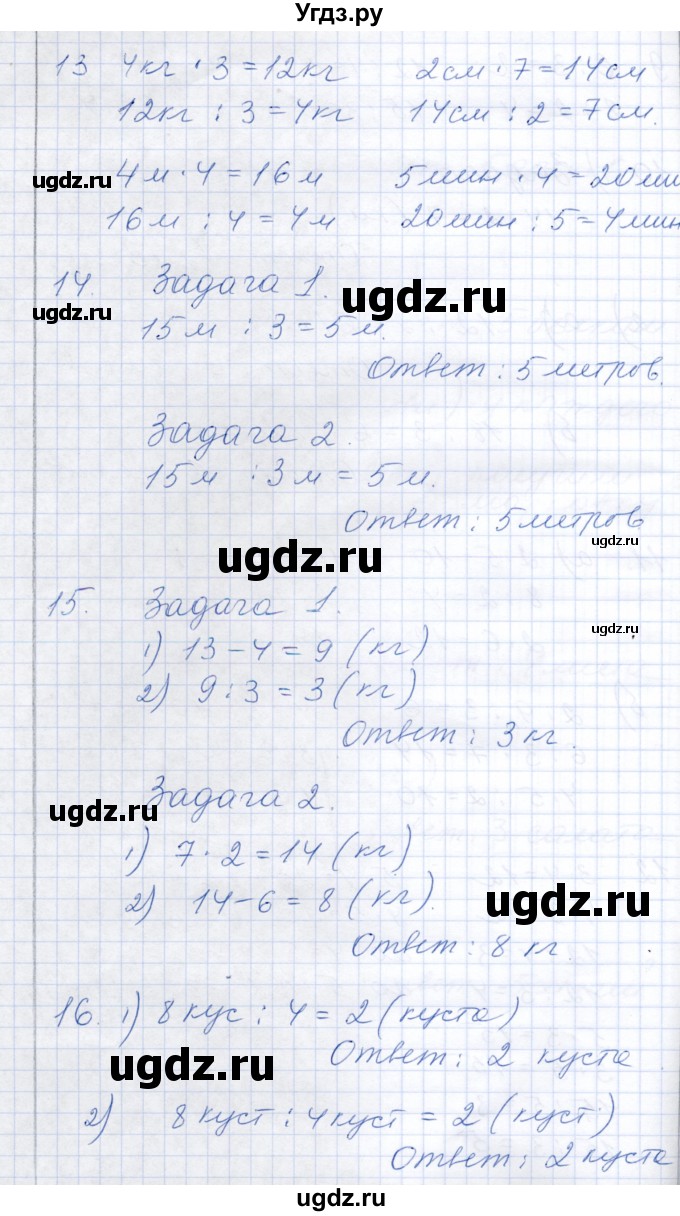 Угдз.ру
13 4кг · 3 = 12кг 2см · 7 = 14см
12кг : 3 = 4кг 14см : 2 = 7см.
ugdz.ru 4м · 4 = 16м 5мин · 4 = 20ми
16м : 4 = 4м 20мин : 5 = 4мин
14. Задача 1.
ugdz.ru ugdz.ru
15м : 3 = 5м.
ugdz.ru
Ответ : 5 метров.
Задача 2.
15м : 3м = 5м.
Ответ : 5 метров
ugdz.ru ugdz.ru
15. Задача 1.
ugdz.ru
1) 13 - 4 = 9 (кг)
2) 9 : 3 = 3 (кг)
Ответ : 3 кг.
Задача 2.
ugdz.ru
1) 7 · 2 = 14 (кг)
2) 14 - 6 = 8 (кг).
ugdz.ru
Ответ : 8 кг.
16. 1) 8 кус : 4 = 2 (куста)
Ответ : 2 куста.
ugdz.ru
2) 8 куст : 4 куст = 2 (куст)
Ответ : 2 куста
ugdz.ru